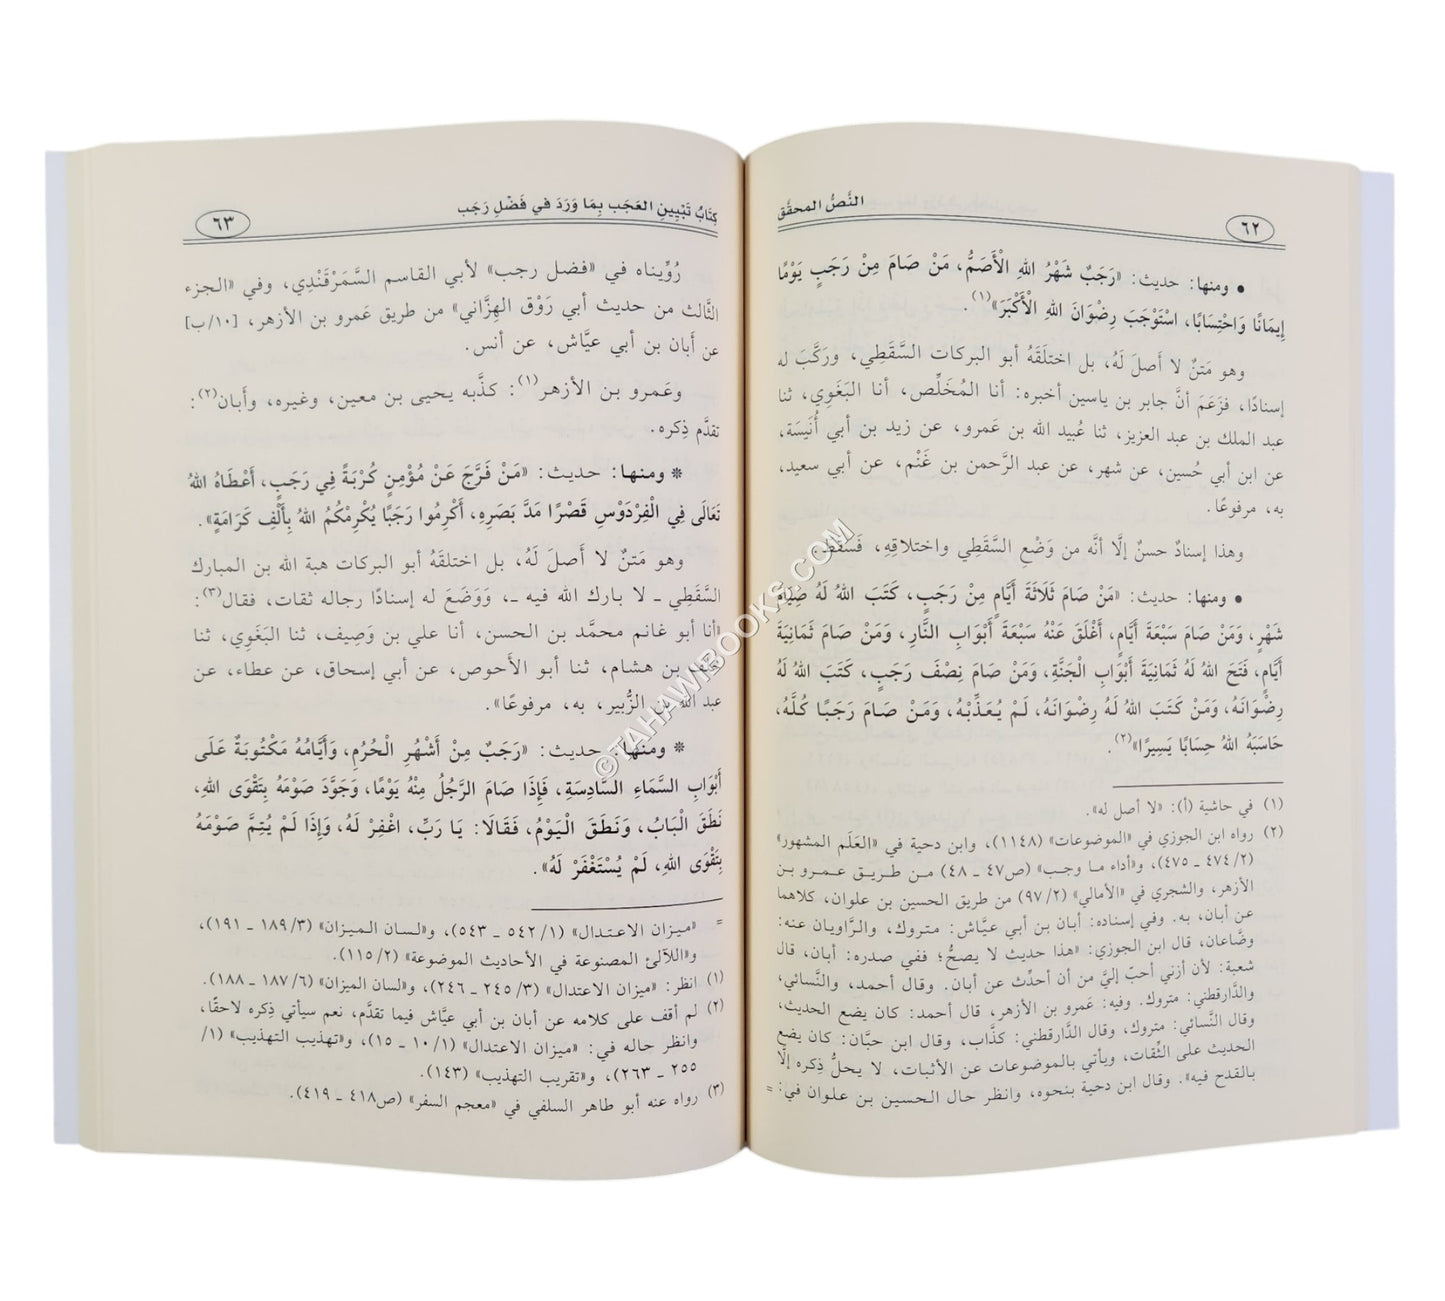 النَّصُّ المحقَّق
٦٢
• ومنها: حديث: «رَجَبٌ شَهْرُ اللهِ الْأَصَمُّ، مَنْ صَامَ مِنْ رَجَبٍ يَوْمًا
إِيمَانًا وَاحْتِسَابًا، اسْتَوْجَبَ رِضْوَانَ اللهِ الْأَكْبَرَ»(١).
وهو مَتنٌ لا أَصلَ لَهُ، بل اختلَقَهُ أبو البركات السَّقَطِي، ورَكَّبَ له
إسنادًا، فزَعَمَ أنَّ جابر بن ياسين أخبره: أنا المُخَلِّص، أنا البَغَوِي، ثنا
عبد الملك بن عبد العزيز، ثنا عُبيد الله بن عَمرو، عن زيد بن أبي أُنَيسَة،
عن ابن أبي حُسين، عن شهر، عن عبد الرَّحمن بن غَنْم، عن أبي سعيد،
به، مرفوعًا.
وهذا إسنادٌ حسنٌ إلَّا أنَّه من وَضْعِ السَّقَطِي واختلاقِهِ، فَسَقَطَ.
• ومنها: حديث: «مَنْ صَامَ ثَلَاثَةَ أَيَّامٍ مِنْ رَجَبٍ، كَتَبَ اللهُ لَهُ صِيَامَ
شَهْرٍ، وَمَنْ صَامَ سَبْعَةَ أَيَّامٍ، أَغْلَقَ عَنْهُ سَبْعَةَ أَبْوَابِ النَّارِ، وَمَنْ صَامَ ثَمَانِيَةَ
أَيَّامٍ، فَتَحَ اللهُ لَهُ ثَمَانِيَةَ أَبْوَابِ الْجَنَّةِ، وَمَنْ صَامَ نِصْفَ رَجَبٍ، كَتَبَ اللهُ لَهُ
رِضْوَانَهُ، وَمَنْ كَتَبَ اللهُ لَهُ رِضْوَانَهُ، لَمْ يُعَذِّبْهُ، وَمَنْ صَامَ رَجَبًا كُلَّهُ،
حَاسَبَهُ اللهُ حِسَابًا يَسِيرًا»(٢).
(١) في حاشية (أ): «لا أصل له».
(٢) رواه ابن الجوزي في «الموضوعات» (١١٤٨)، وابن دحية في «العَلَم المشهور»
(٢/ ٤٧٤ ـ ٤٧٥)، و«أداء ما وجب» (ص٤٧ ـ ٤٨) من طريق عمرو بن
الأزهر، والشجري في «الأمالي» (٢/ ٩٧) من طريق الحسين بن علوان، كلاهما
عن أبان، به. وفي إسناده: أبان بن أبي عيَّاش: متروك، والرَّاويان عنه:
وضَّاعان، قال ابن الجوزي: «هذا حديث لا يصحُّ؛ ففي صدره: أبان، قال
شعبة: لأن أزني أحبّ إليَّ من أن أحدِّث عن أبان. وقال أحمد، والنَّسائي،
والدَّارقطني: متروك. وفيه: عَمرو بن الأزهر، قال أحمد: كان يضع الحديث،
وقال النَّسائي: متروك، وقال الدَّارقطني: كذَّاب، وقال ابن حبَّان: كان يضع
الحديث على الثِّقات، ويأتي بالموضوعات عن الأثبات، لا يحلُّ ذِكره إلَّا
بالقدح فيه». وقال ابن دحية بنحوه، وانظر حال الحسين بن علوان في: =
كِتَابُ تَبْيِينِ العَجَب بِمَا وَرَدَ في فَضْلِ رَجَب
٦٣
رُوِّيناه في «فضل رجب» لأبي القاسم السَّمَرْقَنْدِي، وفي «الجزء
الثَّالث من حديث أبي رَوْق الهِزَّاني» من طريق عَمرو بن الأزهر، [١٠/ب]
عن أَبان بن أبي عيَّاش، عن أنس.
وعَمرو بن الأزهر(١): كذَّبه يحيى بن معين، وغيره، وأَبان(٢):
تقدَّم ذِكره.
* ومنها: حديث: «مَنْ فَرَّجَ عَنْ مُؤْمِنٍ كُرْبَةً فِي رَجَبٍ، أَعْطَاهُ اللهُ
تَعَالَى فِي الْفِرْدَوْسِ قَصْرًا مَدَّ بَصَرِهِ، أَكْرِمُوا رَجَبًا يُكْرِمْكُمُ اللهُ بِأَلْفِ كَرَامَةٍ».
وهو مَتنٌ لا أَصلَ لَهُ، بل اختلقَهُ أبو البركات هبة الله بن المبارك
السَّقَطِي ـ لا بارك الله فيه ـ، وَوَضَعَ له إسنادًا رجاله ثقات، فقال(٣):
«أنا أبو غانم محمَّد بن الحسن، أنا علي بن وَصِيف، ثنا البَغَوِي، ثنا
خلف بن هشام، ثنا أبو الأَحوص، عن أبي إسحاق، عن عطاء، عن
عبد الله بن الزُّبير، به، مرفوعًا».
* ومنها: حديث: «رَجَبٌ مِنْ أَشْهُرِ الْحُرُمِ، وَأَيَّامُهُ مَكْتُوبَةٌ عَلَى
أَبْوَابِ السَّمَاءِ السَّادِسَةِ، فَإِذَا صَامَ الرَّجُلُ مِنْهُ يَوْمًا، وَجَوَّدَ صَوْمَهُ بِتَقْوَى اللهِ،
نَطَقَ الْبَابُ، وَنَطَقَ الْيَوْمُ، فَقَالَا: يَا رَبِّ، اغْفِرْ لَهُ، وَإِذَا لَمْ يُتِمَّ صَوْمَهُ
بِتَقْوَى اللهِ، لَمْ يُسْتَغْفَرْ لَهُ».
= «ميزان الاعتدال» (١/ ٥٤٢ ـ ٥٤٣)، و«لسان الميزان» (٣/ ١٨٩ ـ ١٩١)،
و«اللآلئ المصنوعة في الأحاديث الموضوعة» (٢/ ١١٥).
(١) انظر: «ميزان الاعتدال» (٣/ ٢٤٥ ـ ٢٤٦)، و«لسان الميزان» (٦/ ١٨٧ ـ ١٨٨).
(٢) لم أقف على كلامه عن أبان بن أبي عيَّاش فيما تقدَّم، نعم سيأتي ذِكره لاحقًا،
وانظر حاله في: «ميزان الاعتدال» (١/ ١٠ ـ ١٥)، و«تهذيب التهذيب» (١/
٢٥٥ ـ ٢٦٣)، و«تقريب التهذيب» (١٤٣).
(٣) رواه عنه أبو طاهر السلفي في «معجم السفر» (ص٤١٨ ـ ٤١٩).
©TAHAWIBOOKS.COM